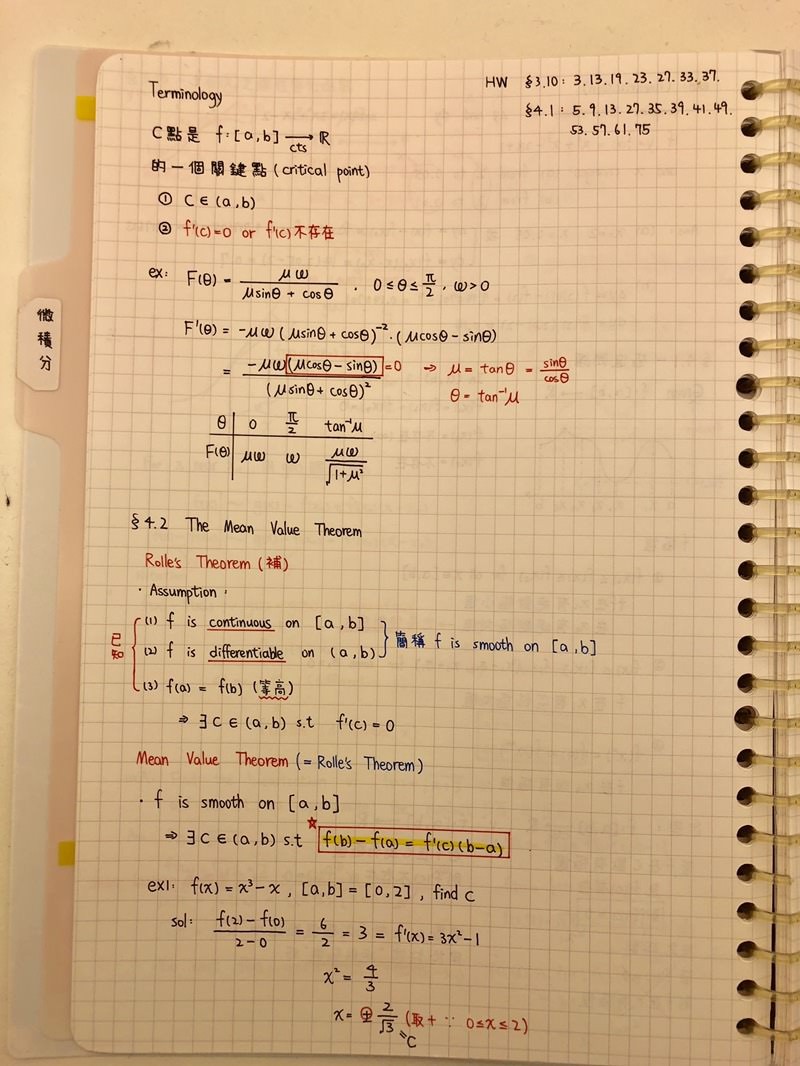 HW §3.10: 3.13.19.23.27.33.37.
§4.1: 5.9.13.27.35.39.41.49.
53.57.61.75
Terminology
C點是 f:[a,b] →cts ℝ
的一個關鍵點(critical point)
① C∈(a,b)
② f'(c)=0 or f'(c)不存在
ex: F(θ) = μω / (μsinθ + cosθ) , 0≤θ≤π/2, ω>0
F'(θ) = -μω(μsinθ + cosθ)⁻²·(μcosθ - sinθ)
= -μω(μcosθ - sinθ) / (μsinθ + cosθ)² =0 → μ = tanθ = sinθ/cosθ
θ = tan⁻¹μ
θ 0 π/2 tan⁻¹μ
F(θ) μω ω μω/√(1+μ²)
微積分
§4.2 The Mean Value Theorem
Rolle's Theorem(補)
· Assumption:
已知
(1) f is continuous on [a,b]
(2) f is differentiable on (a,b)
簡稱 f is smooth on [a,b]
(3) f(a) = f(b) (等高)
⇒ ∃C∈(a,b) s.t f'(c)=0
Mean Value Theorem(= Rolle's Theorem)
· f is smooth on [a,b]
⇒ ∃C∈(a,b) s.t ☆ f(b)-f(a) = f'(c)(b-a)
ex1: f(x) = x³-x , [a,b] = [0,2] , find C
sol: (f(2)-f(0))/(2-0) = 6/2 = 3 = f'(x) = 3x²-1
x² = 4/3
x = ± 2/√3 (取+ ∵ 0≤x≤2)
=C